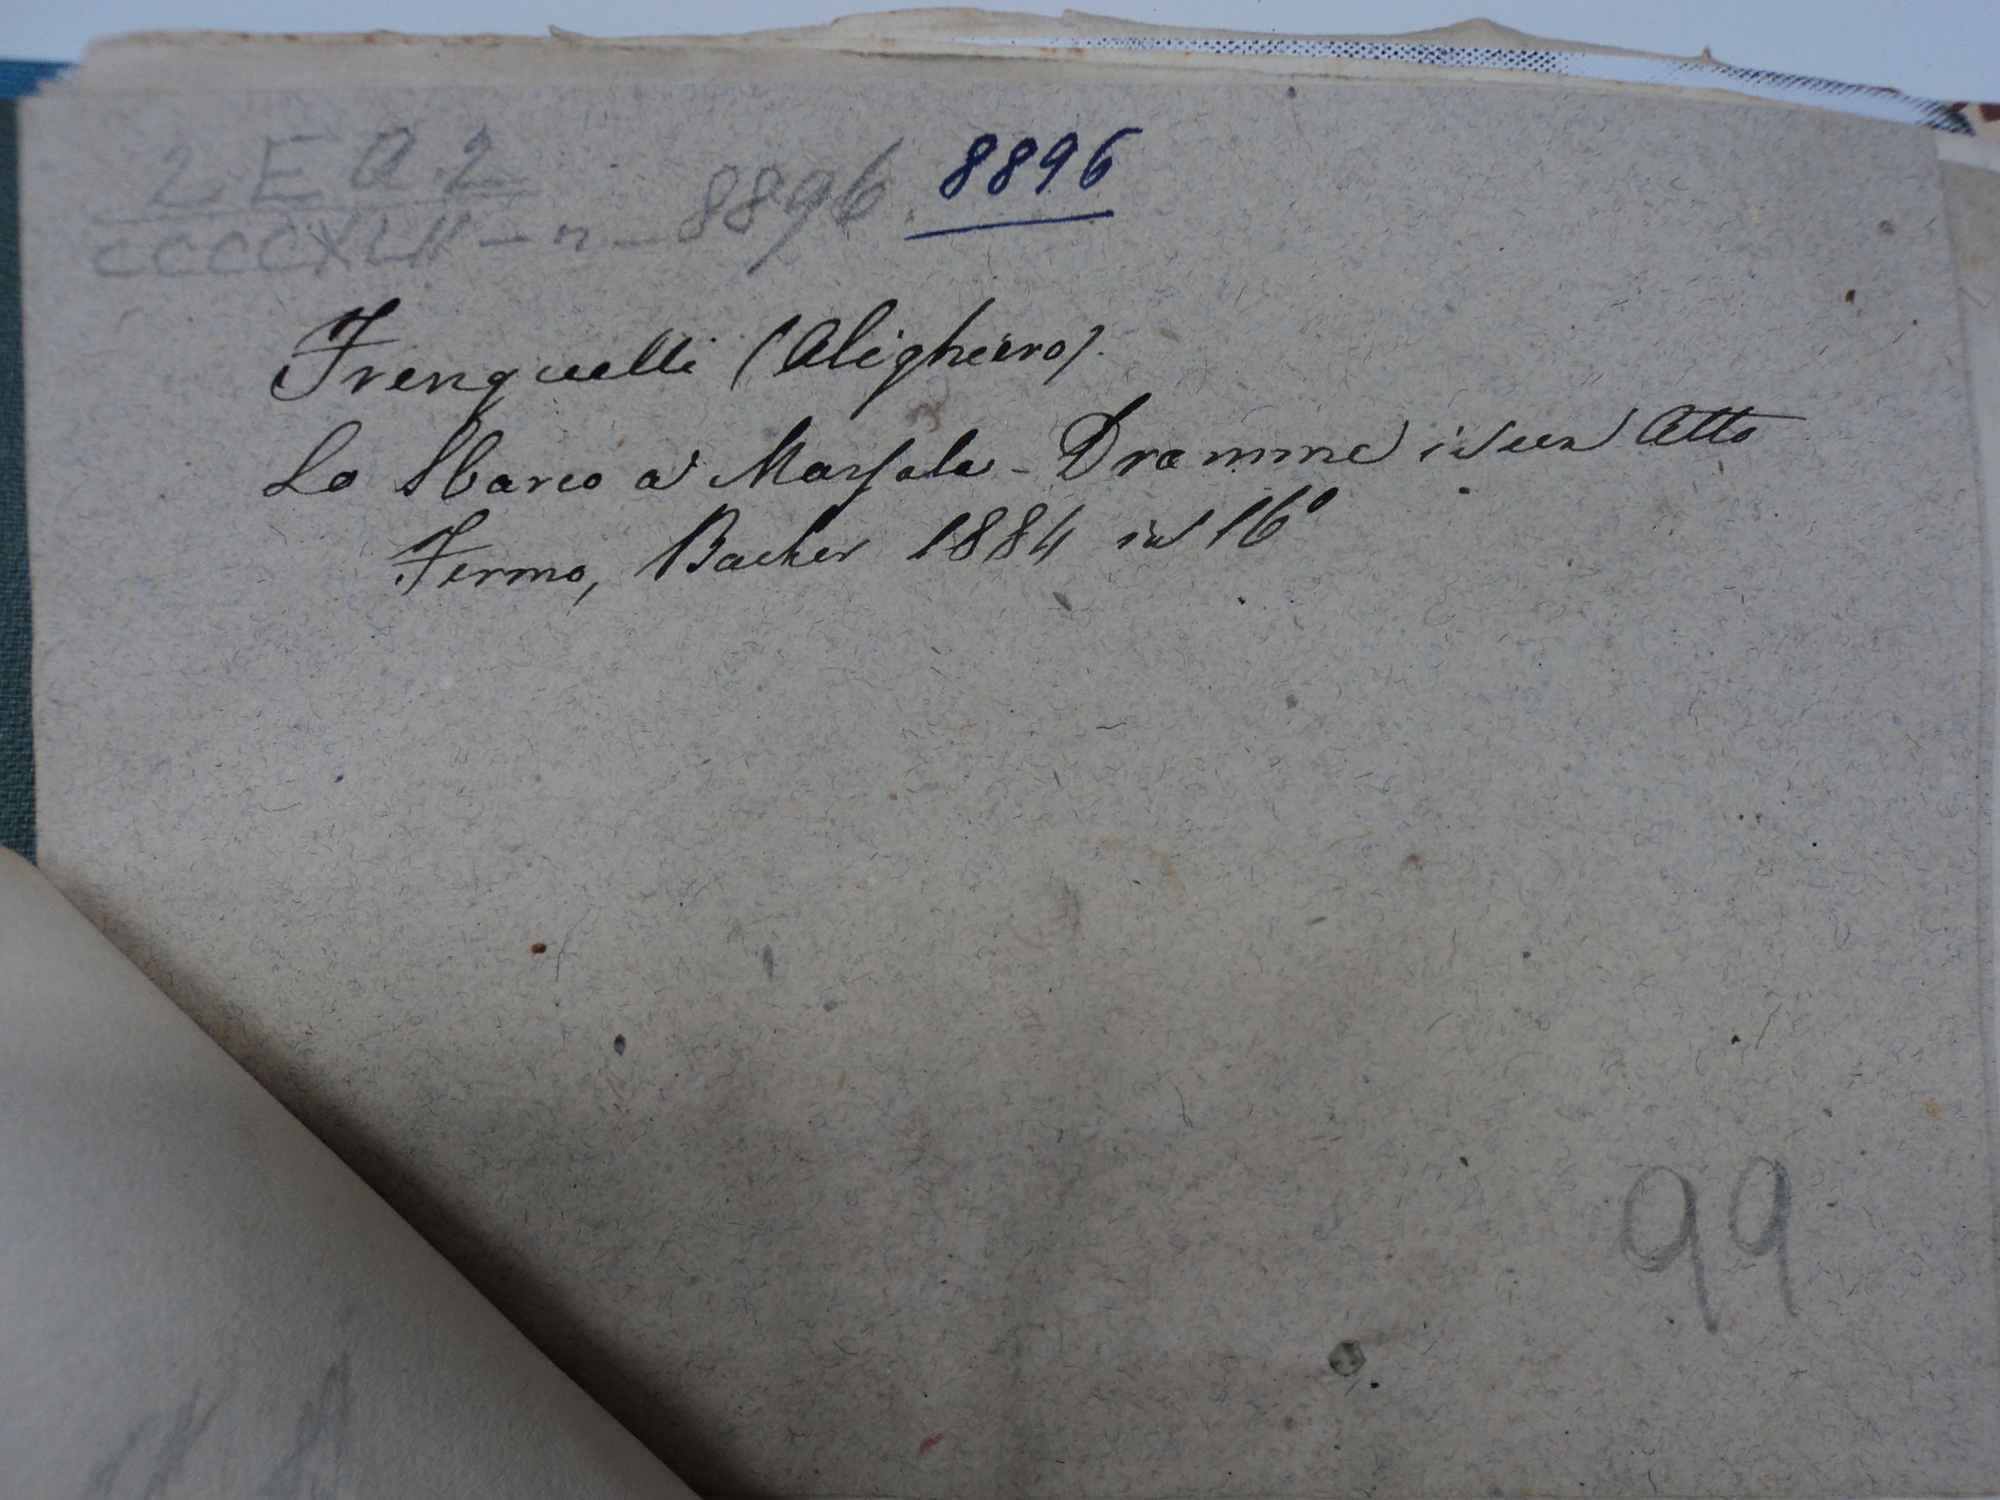 2 E a. 2
CCCCXLII - n - 8896. 8896
Frenquelli (Alighiero).
Lo Sbarco a Marsala - Dramma in un Atto
Fermo, Bacher 1884 in 16°
99